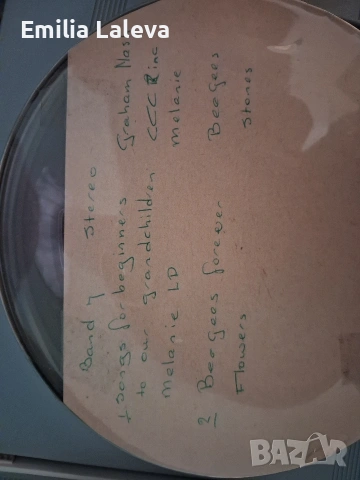 Emilia Laleva
Band 4 Stereo
1 Songs for beginners Graham Nas
to our grandchildren CCC Rinc
Melanie LD Melanie
2 Beegees forever Beegees
Flowers Stones
BAZAR
bg